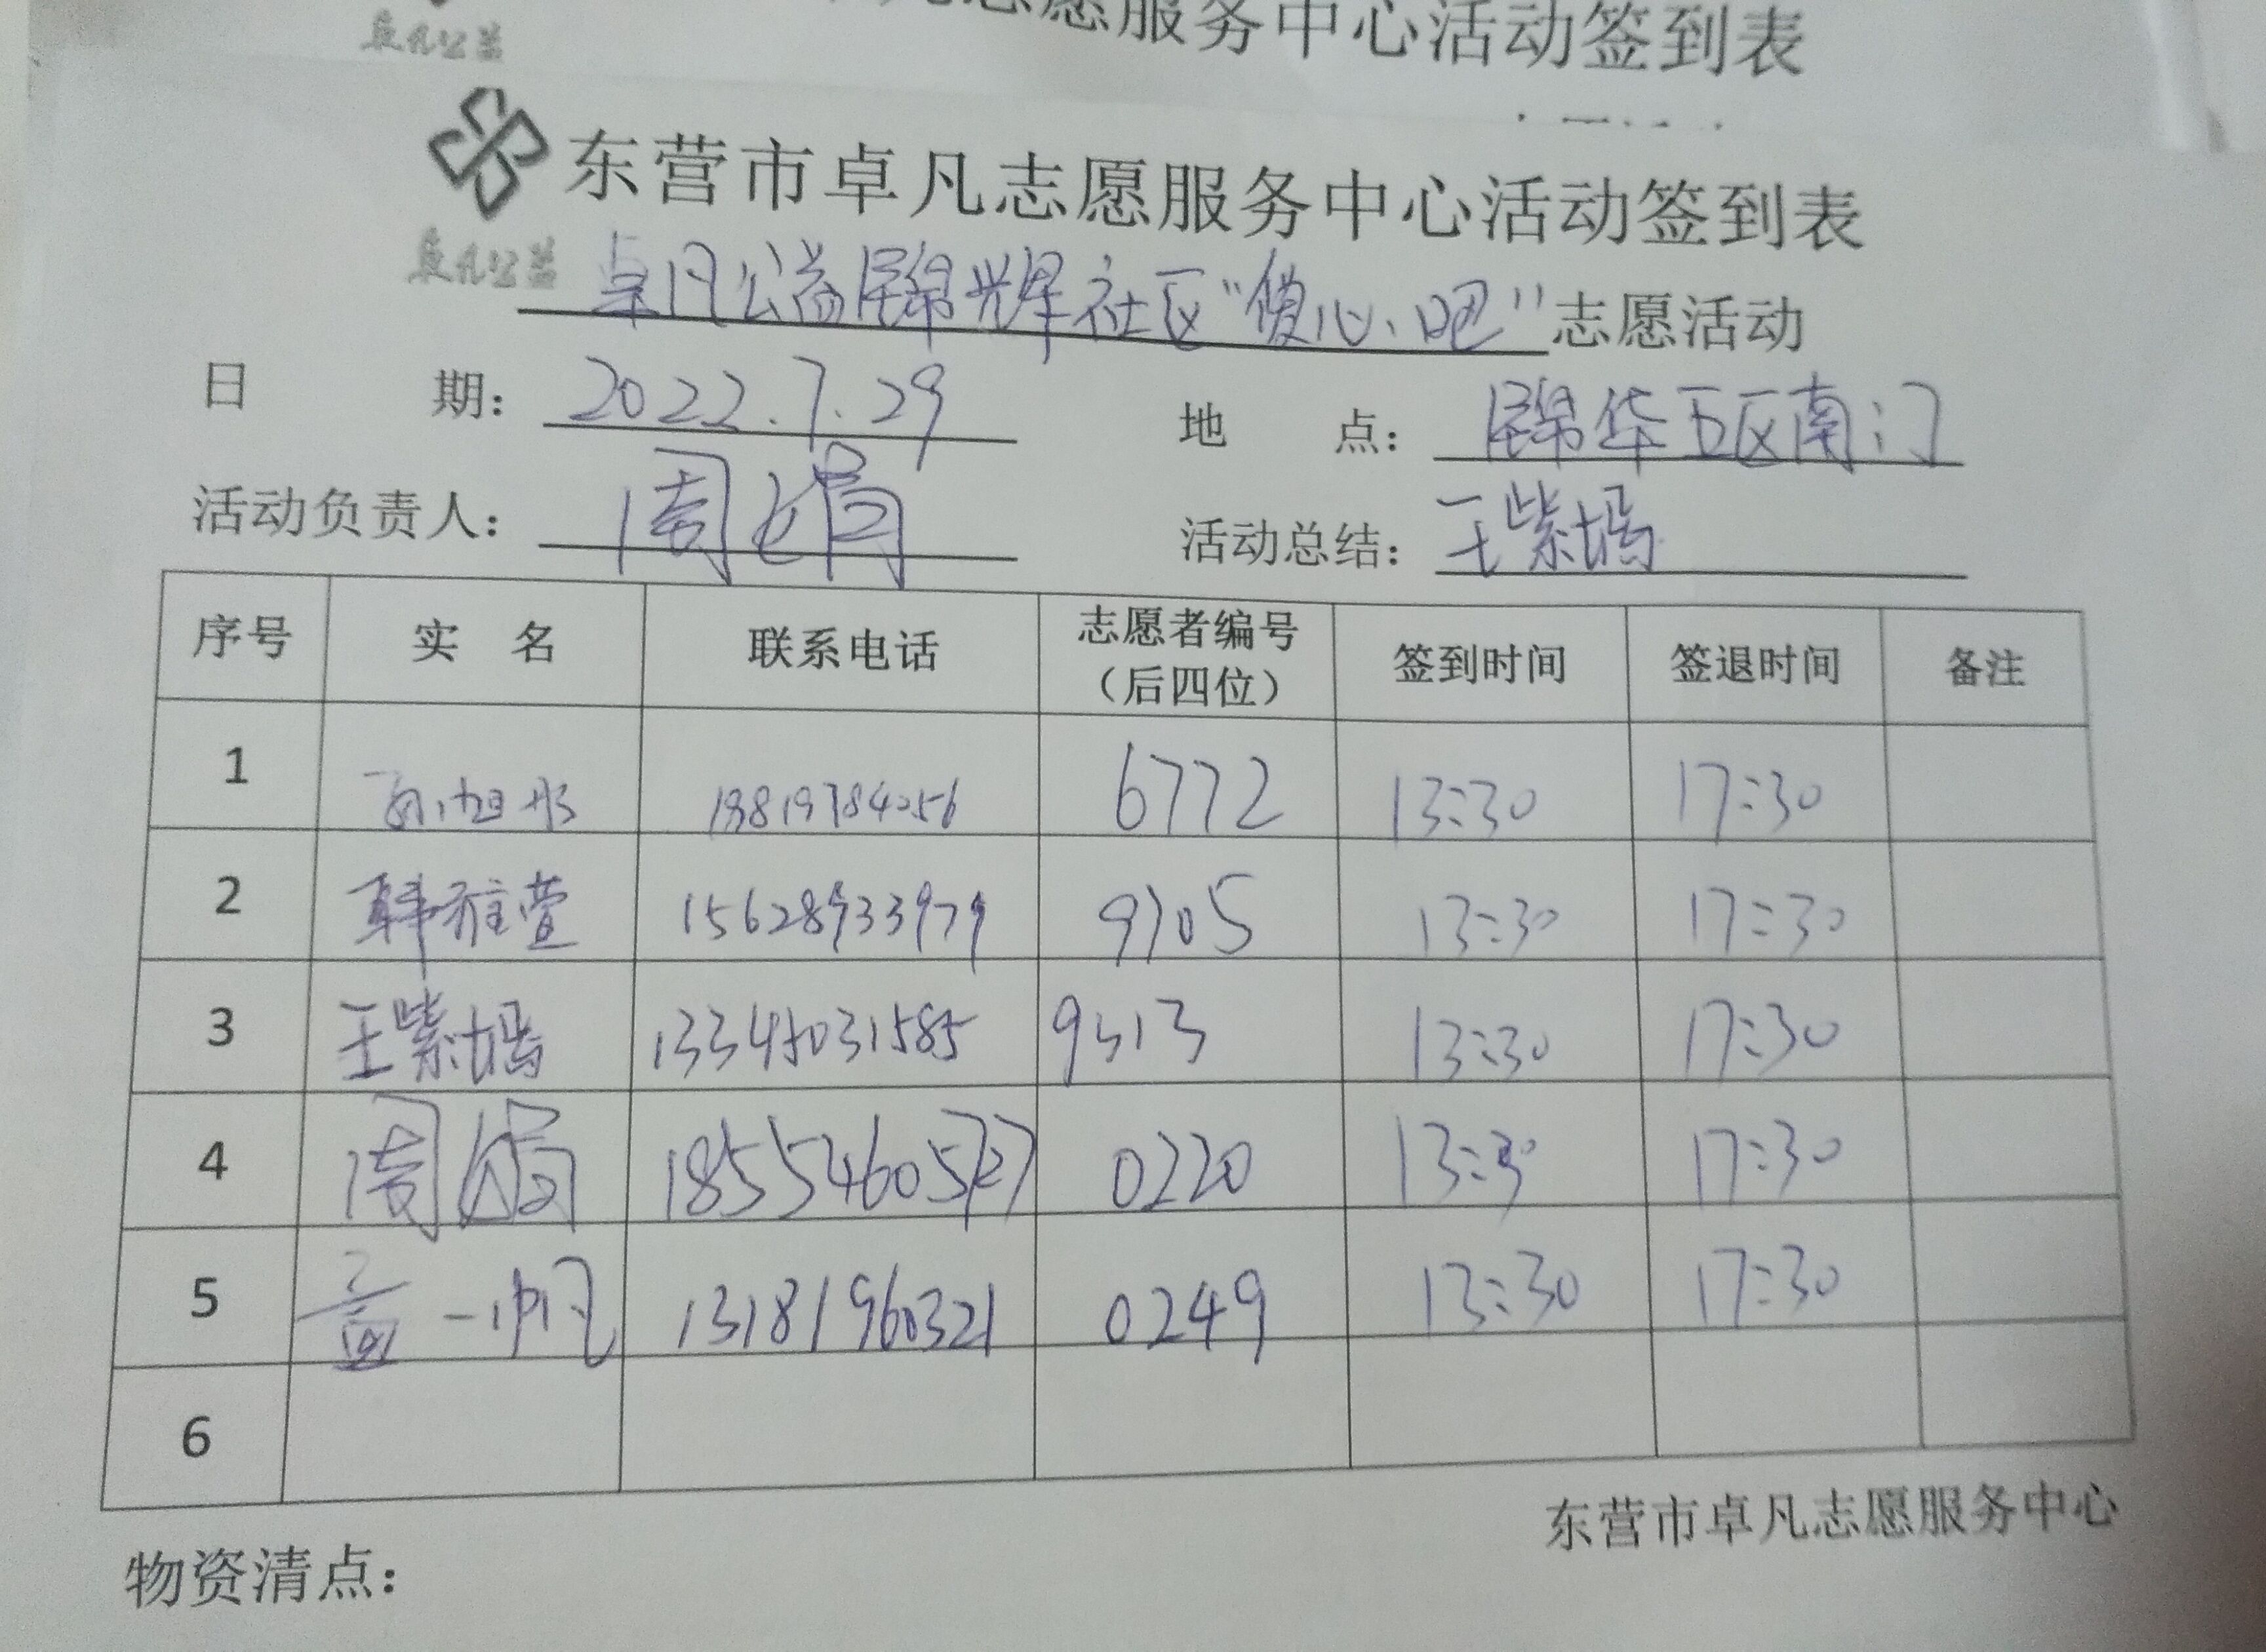 卓凡公益
志愿服务中心活动签到表
东营市卓凡志愿服务中心活动签到表
卓凡公益
卓凡公益锦辉社区“馊心吧”志愿活动
日期：2022.7.29 地点：锦华五区南门
活动负责人：周娟 活动总结：王紫嫣
序号 实名 联系电话 志愿者编号（后四位） 签到时间 签退时间 备注
1 6772 13:30 17:30
2 韩雅萱 15628933979 9705 13:30 17:30
3 王紫嫣 13345031585 9313 13:30 17:30
4 周娟 18554605727 0220 13:30 17:30
5 盖一帆 13181960321 0249 13:30 17:30
6
东营市卓凡志愿服务中心
物资清点：